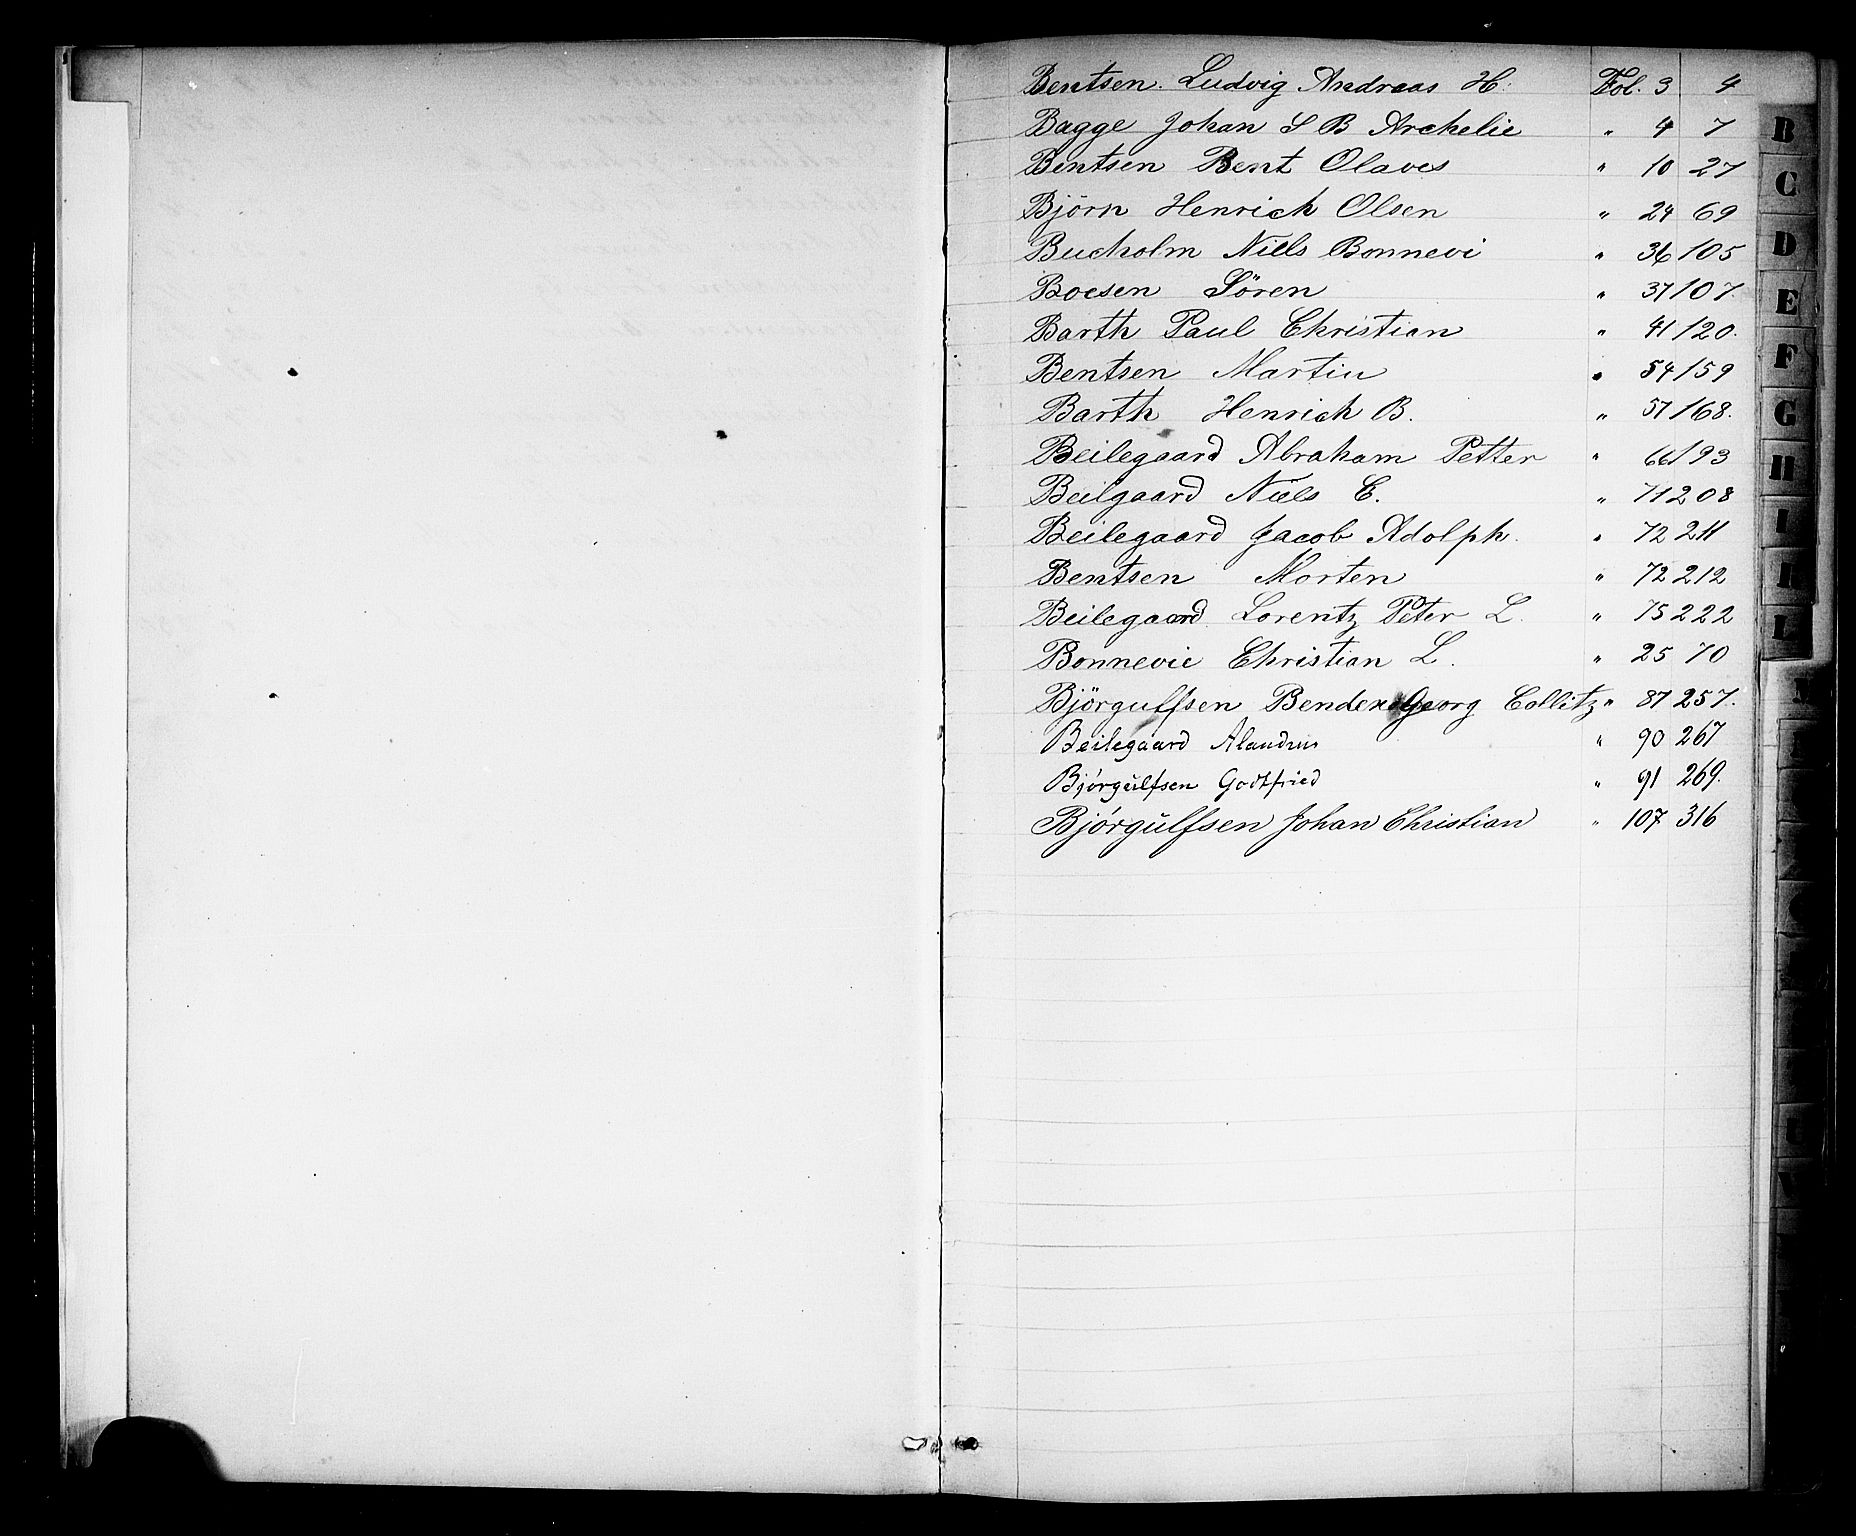 Bentsen. Ludvig Andreas H. Fol. 3 4
Bagge Johan S B Archelie " 4 7
Bentsen Bent Olaves " 10 27
Björn Henrich Olsen " 24 69
Bucholm Niels Bonnevi " 36 105
Boesen Sören " 37 107.
Barth Paul Christian " 41 120.
Bentsen Martin " 54 159
Barth Henrich B. " 57 168.
Beilegaard Abraham Petter " 66 193
Beilgaard Niels C. " 71 208
Beilegaard Jacob Adolph. " 72 211
Bentsen Morten " 72 212
Beilegaard Lorentz Peter L. " 75 222
Bonnevie Christian L. " 25 70
Björgulfsen Georg Collitz " 87 257.
Beilegaard " 90 267
Bjørgulfsen Godtfried " 91 269.
Bjørgulfsen Johan Christian " 107 316
B
C
D
E
F
G
H
I
K
L